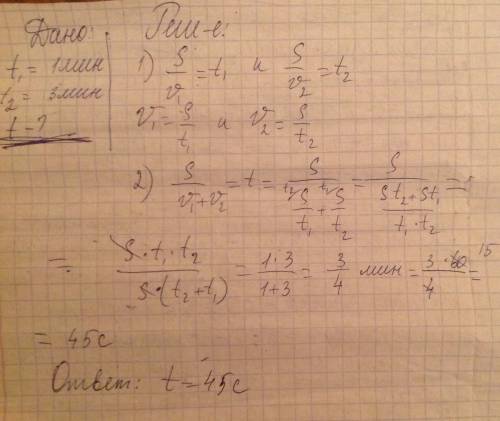 Дано: Реш-е:
t₁ = 1мин
t₂ = 3мин
t - ?
1) S/v₁ = t₁ и S/v₂ = t₂
v₁ = S/t₁ и v₂ = S/t₂
2) S/(v₁+v₂) = t = S/(ᵗ²⁾S/t₁ + ᵗ¹⁾S/t₂) = S/((St₂+St₁)/(t₁·t₂)) =
= S·t₁·t₂/(S·(t₂+t₁)) = 1·3/(1+3) = 3/4 мин = 3·60/4 = 15
= 45с
Ответ: t = 45с